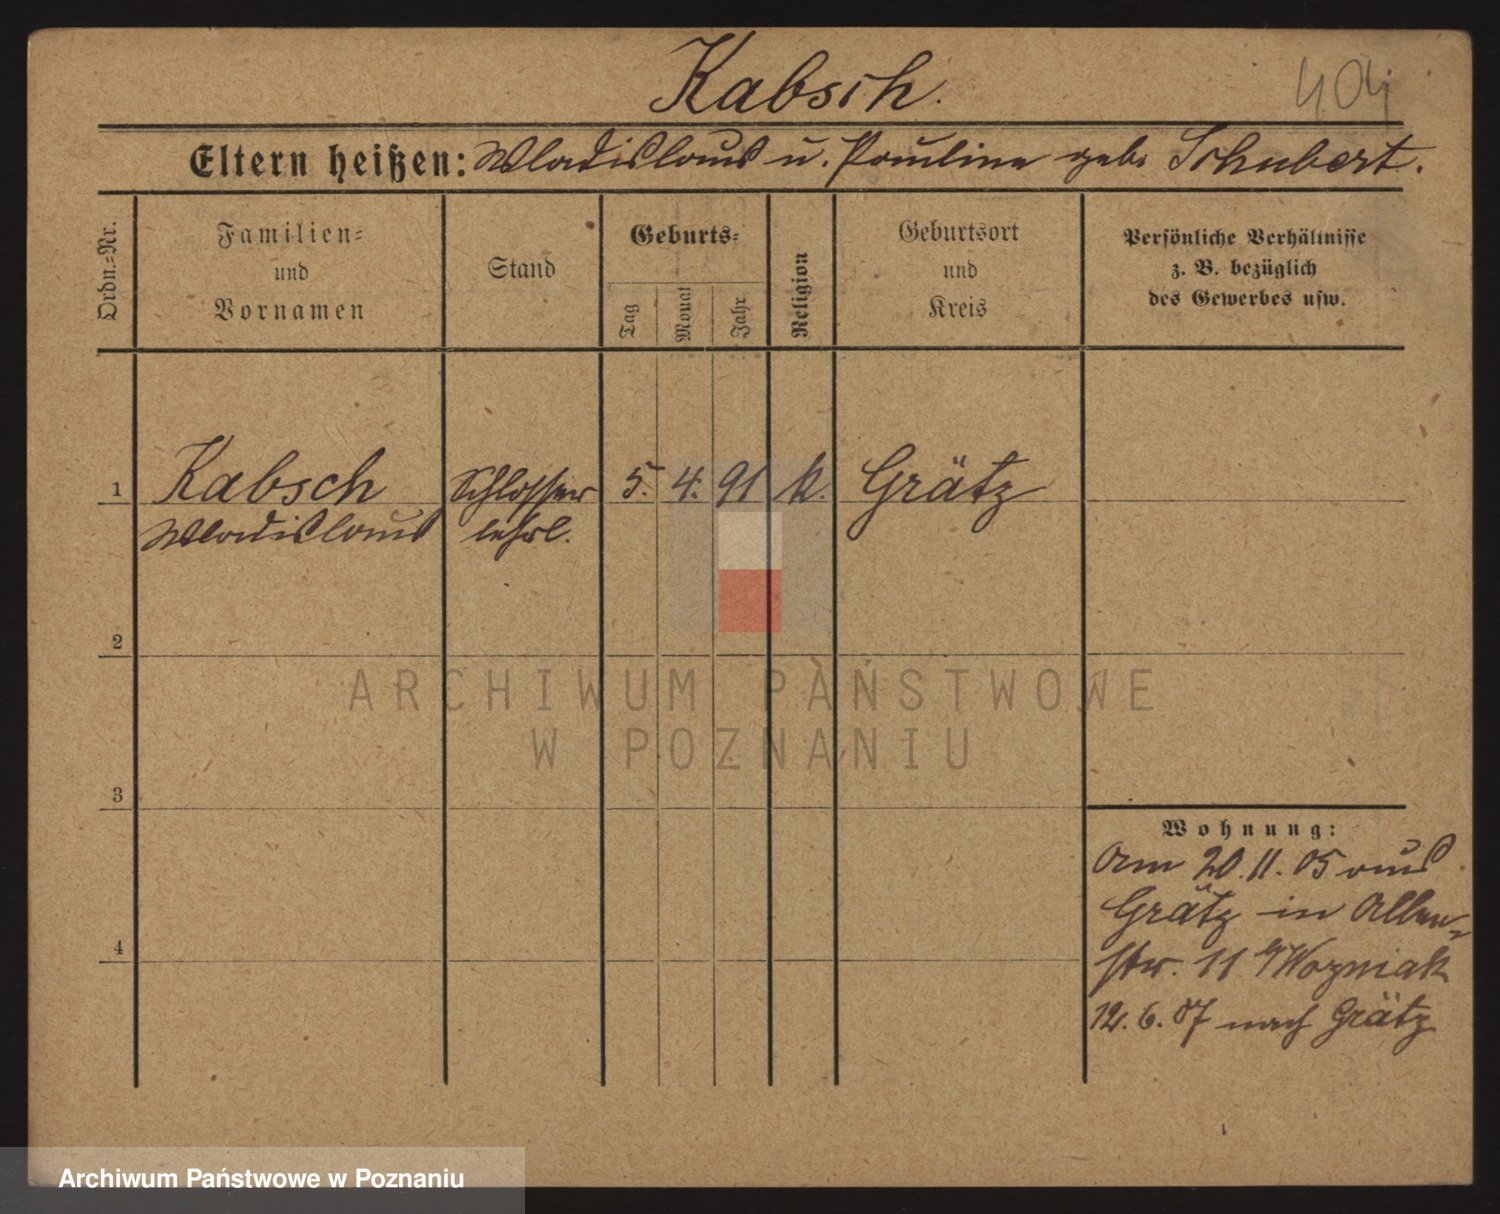 Kabsch.
Eltern heißen: Wladislaus u. Pauline geb. Schubert.
Ordn.-Nr.
Familien-
und
Vornamen
Stand
Geburts-
Tag
Monat
Jahr
Religion
Geburtsort
und
Kreis
Persönliche Verhältnisse
z. B. bezüglich
des Gewerbes usw.
1 Kabsch Schlosser 5. 4. 91 k. Grätz
Wladislaus lehrl.
2
ARCHIWUM PAŃSTWOWE
W POZNANIU
3
Wohnung:
Am 20.11.05 aus
Grätz in Allen-
str. 11 b/ Wozniak
4
12.6.07 nach Grätz
Archiwum Państwowe w Poznaniu